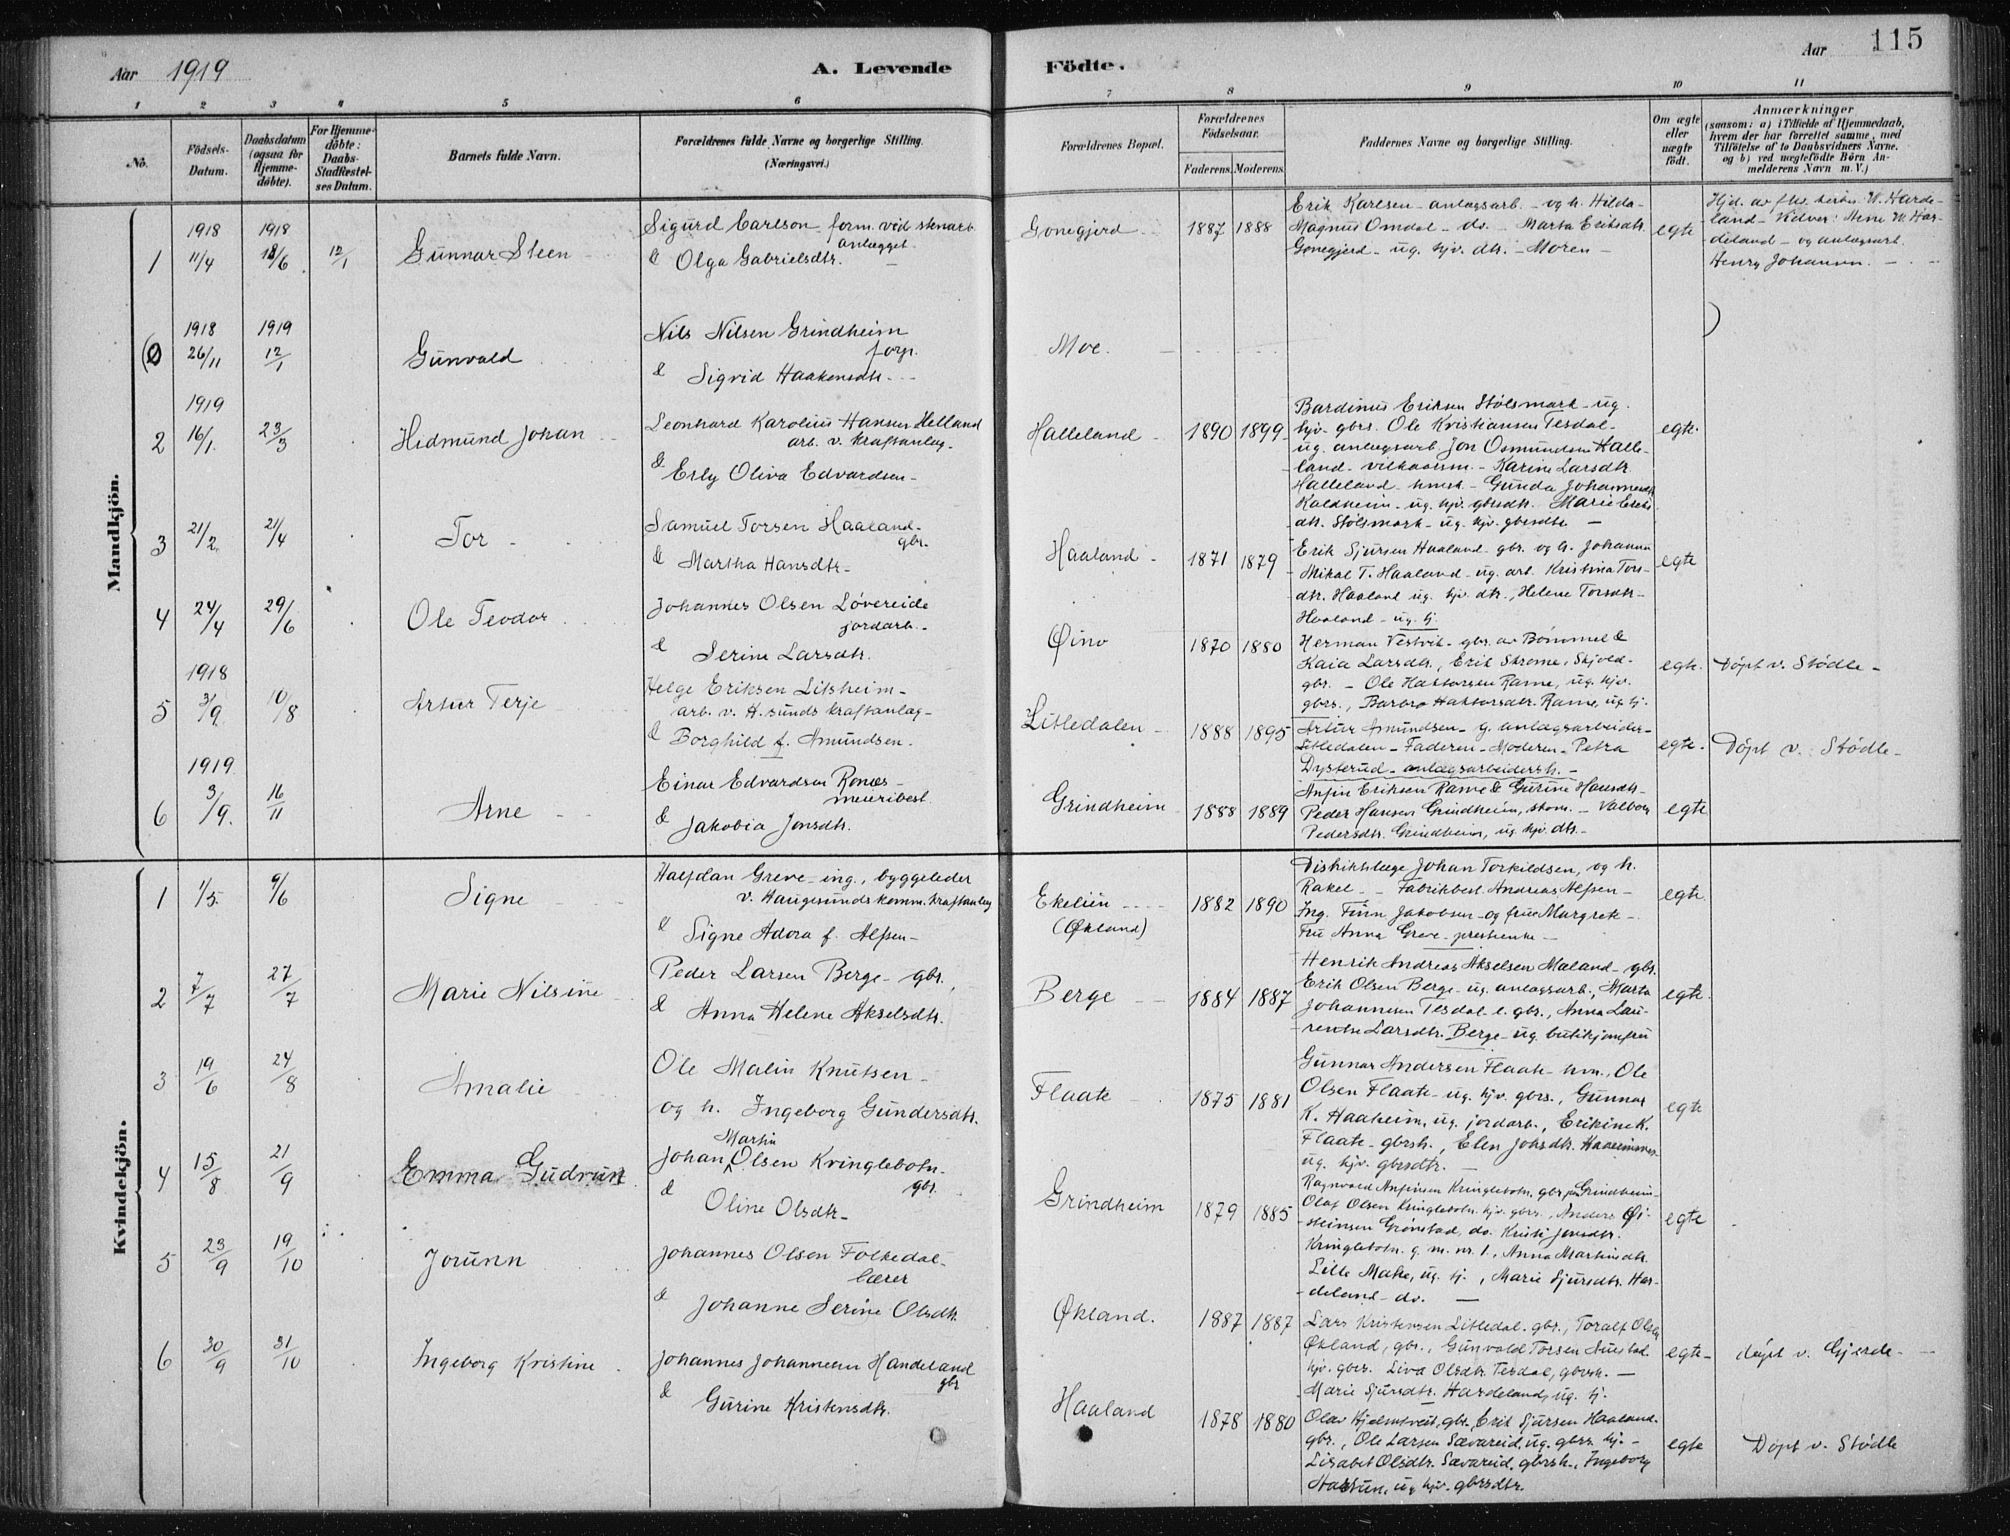 Aar 1919
A. Levende
Födte.
Aar
115
1 2 3 4 5 6 7 8 9 10 11
No.
Födsels-Datum.
Daabsdatum (ogsaa for Hjemme-döbte).
For Hjemme-döbte: Daabs-Stadfæstel-ses Datum.
Barnets fulde Navn.
Forældrenes fulde Navne og borgerlige Stilling.
(Næringsvei.)
Forældrenes Bopæl.
Forældrenes Födselsaar.
Faderens. Moderens.
Faddernes Navne og borgerlige Stilling.
Om ægte eller uægte født.
Anmærkninger
(saasom: a) i Tilfælde af Hjemmedaab,
hvem der har forrettet samme, med
Tilföielse af to Daabsvidners Navne.
og b) ved uægtefödte Börn An-
melderens Navn m. V.)
Mandkjön.
1 1918 11/4 1918 18/6 12/1 Gunnar Steen
Sigurd Carlson form. ved
anlægget
& Olga Gabrielsdtr.
Gonegjerd 1887 1888
Erik Karlsen anlægsarb. og h. Hilda
Magnus Omdal do. Marta Eriksdtr.
Gonegjerd ug. hjv. dtr. Moren
egte
Henry Johansen
1918 26/11 1919 12/1 Gunvald
Nils Nilsen Grindheim
forp.
& Sigrid Haakonsdtr.
Moe.
2 1919 16/1 23/3 Hidmund Johan
Leonhard Karolius Hansen Helland
arb. v. kraftanlæg
& Erly Oliva Edvardsen
Halleland 1890 1899
Bardinus Eriksen Stølsmark ug.
hjv. gbrs. Ole Kristiansen Tesdal
ug. anlægsarb. Jon Osmundsen Halle-
land Karine Larsdtr.
Halleland Gunda Johannesdtr.
Kaldheim ug. hjv. gbrsdtr. Marie Eriks
dtr. Stølsmark ug. hjv. gbrsdtr.
egte
3 21/2 21/4 Tor
Samuel Torsen Haaland
gbr.
& Martha Hansdtr.
Haaland 1871 1879
Erik Sjursen Haaland gbr. og h. Johanna
Mikal T. Haaland ug. arb. Kristina Tors-
dtr. Haaland ug. hjv. dtr., Helene Torsdtr.
Haaland ug. tj.
egte
4 24/4 29/6 Ole Teodor
Johannes Olsen Løvereide
jordarb.
& Serine Larsdtr.
Øino 1870 1880
Herman Vestvik gbr. av Bømmel &
Kaia Larsdtr., Erik Skrome, Skjold
gbr. Ole Haktorsen Rame, ug. hjv.
gbrs., Barbro Haktorsdtr. Rame, ug. tj.
egte. Döpt v. Stødle
5 1918 3/9 10/8 Artur Terje
Helge Eriksen Litsheim
arb. v. H.sunds kraftanlæg
& Borghild f. Amundsen.
Litledalen 1888 1895
Artur Amundsen g. anlægsarbeider
Litledalen Faderen Moderen Petra
Dysterud anlægsarbeidersh.
egte. Döpt v. Stødle
6 1919 3/9. 16/11 Arne
Einar Edvardsen Ronæs
meieribest.
& Jakobia Jonsdtr.
Grindheim 1888 1889
Anfin Eriksen Rame & Gurine Hansdtr.
Peder Hansen Grindheim, Valborg
Pedersdtr. Grindheim, ug. hjv. dtr.
egte
Kvindekjön.
1 1/5. 9/6 Signe
Halfdan Greve ing., byggeleder
v. Haugesunds komm. kraftanlæg
& Signe Adora f. Alfsen
Ekelien (Økland) 1882 1890
Distriktslæge Johan Torkildsen, og h.
Rakel Fabrikbest. Andreas Alfsen
Ing. Finn Jakobsen og frue Margrete
Fru Anna Greve presteenke
egte.
2 7/7 27/7 Marie Nilsine
Peder Larsen Berge gbr.
& Anna Helene Akselsdtr.
Berge 1884 1887
Henrik Andreas Akselsen Mæland gbr.
Erik Olsen Berge ug. anlægsarb., Marta
Johannesen Tesdal e. gbr., Anna Lau-
rentse Larsdtr. Berge ug. butikjomfru
egte.
3 19/6 24/8 Amalie
Ole Malin Knutsen
og h. Ingeborg Gundersdtr.
Flaate 1875 1881
Gunnar Andersen Flaate hm., Ole
Olsen Flaate ug. hjv. gbrs., Gunnar
K. Haaheim, ug. jordarb., Erikine K.
Flaate gbrsh., Elen Johsdtr.
ug. hjv. gbrsdtr.
egte
4 15/8 21/9 Emma Gudrun
Johan Martin Olsen Kringlebotn
gbr.
& Oline Olsdtr.
Grindheim 1879 1885
Ragnvald Anfinsen Kringlebotn, gbr. Grindheim
Olaf Olsen Kringlebotn hjv. gbrs., Anders Øi-
steinsen Grønstad, do. Kristi Jonsdtr.
Kringlebotn g. m. nr. 1., Anna Martinsdtr.
Lille Mæke, ug. tj., Marie Sjursdtr. Har-
deland do.
egte
5 23/9 19/10 Jorunn
Johannes Olsen Folkedal
lærer
& Johanne Serine Olsdtr.
Økland. 1887 1887
Lars Kristensen Litledal gbr., Toralf Olsen
Økland, gbr., Gunvald Torsen
hjv. gbrs. Liva Olsdtr. Tesdal, gbrsh.
Marie Sjursdtr. Hardeland, ug. tj.
egte døpt v. Gjerde
6 30/9 31/10 Ingeborg Kristine
Johannes Johannesen Handeland
gbr
& Gurine Kristensdtr.
Haaland 1878 1880
Olav Hjelmtveit, gbr., Erik Sjursen Haaland
gbr., Ole Larsen Sævareid, ug. gbrs. hj.
Lisabet Olsdtr. Sævareid, gbrsh., Ingeborg
ug. hjv. gbrsdtr.
egte Døpt v. Stødle